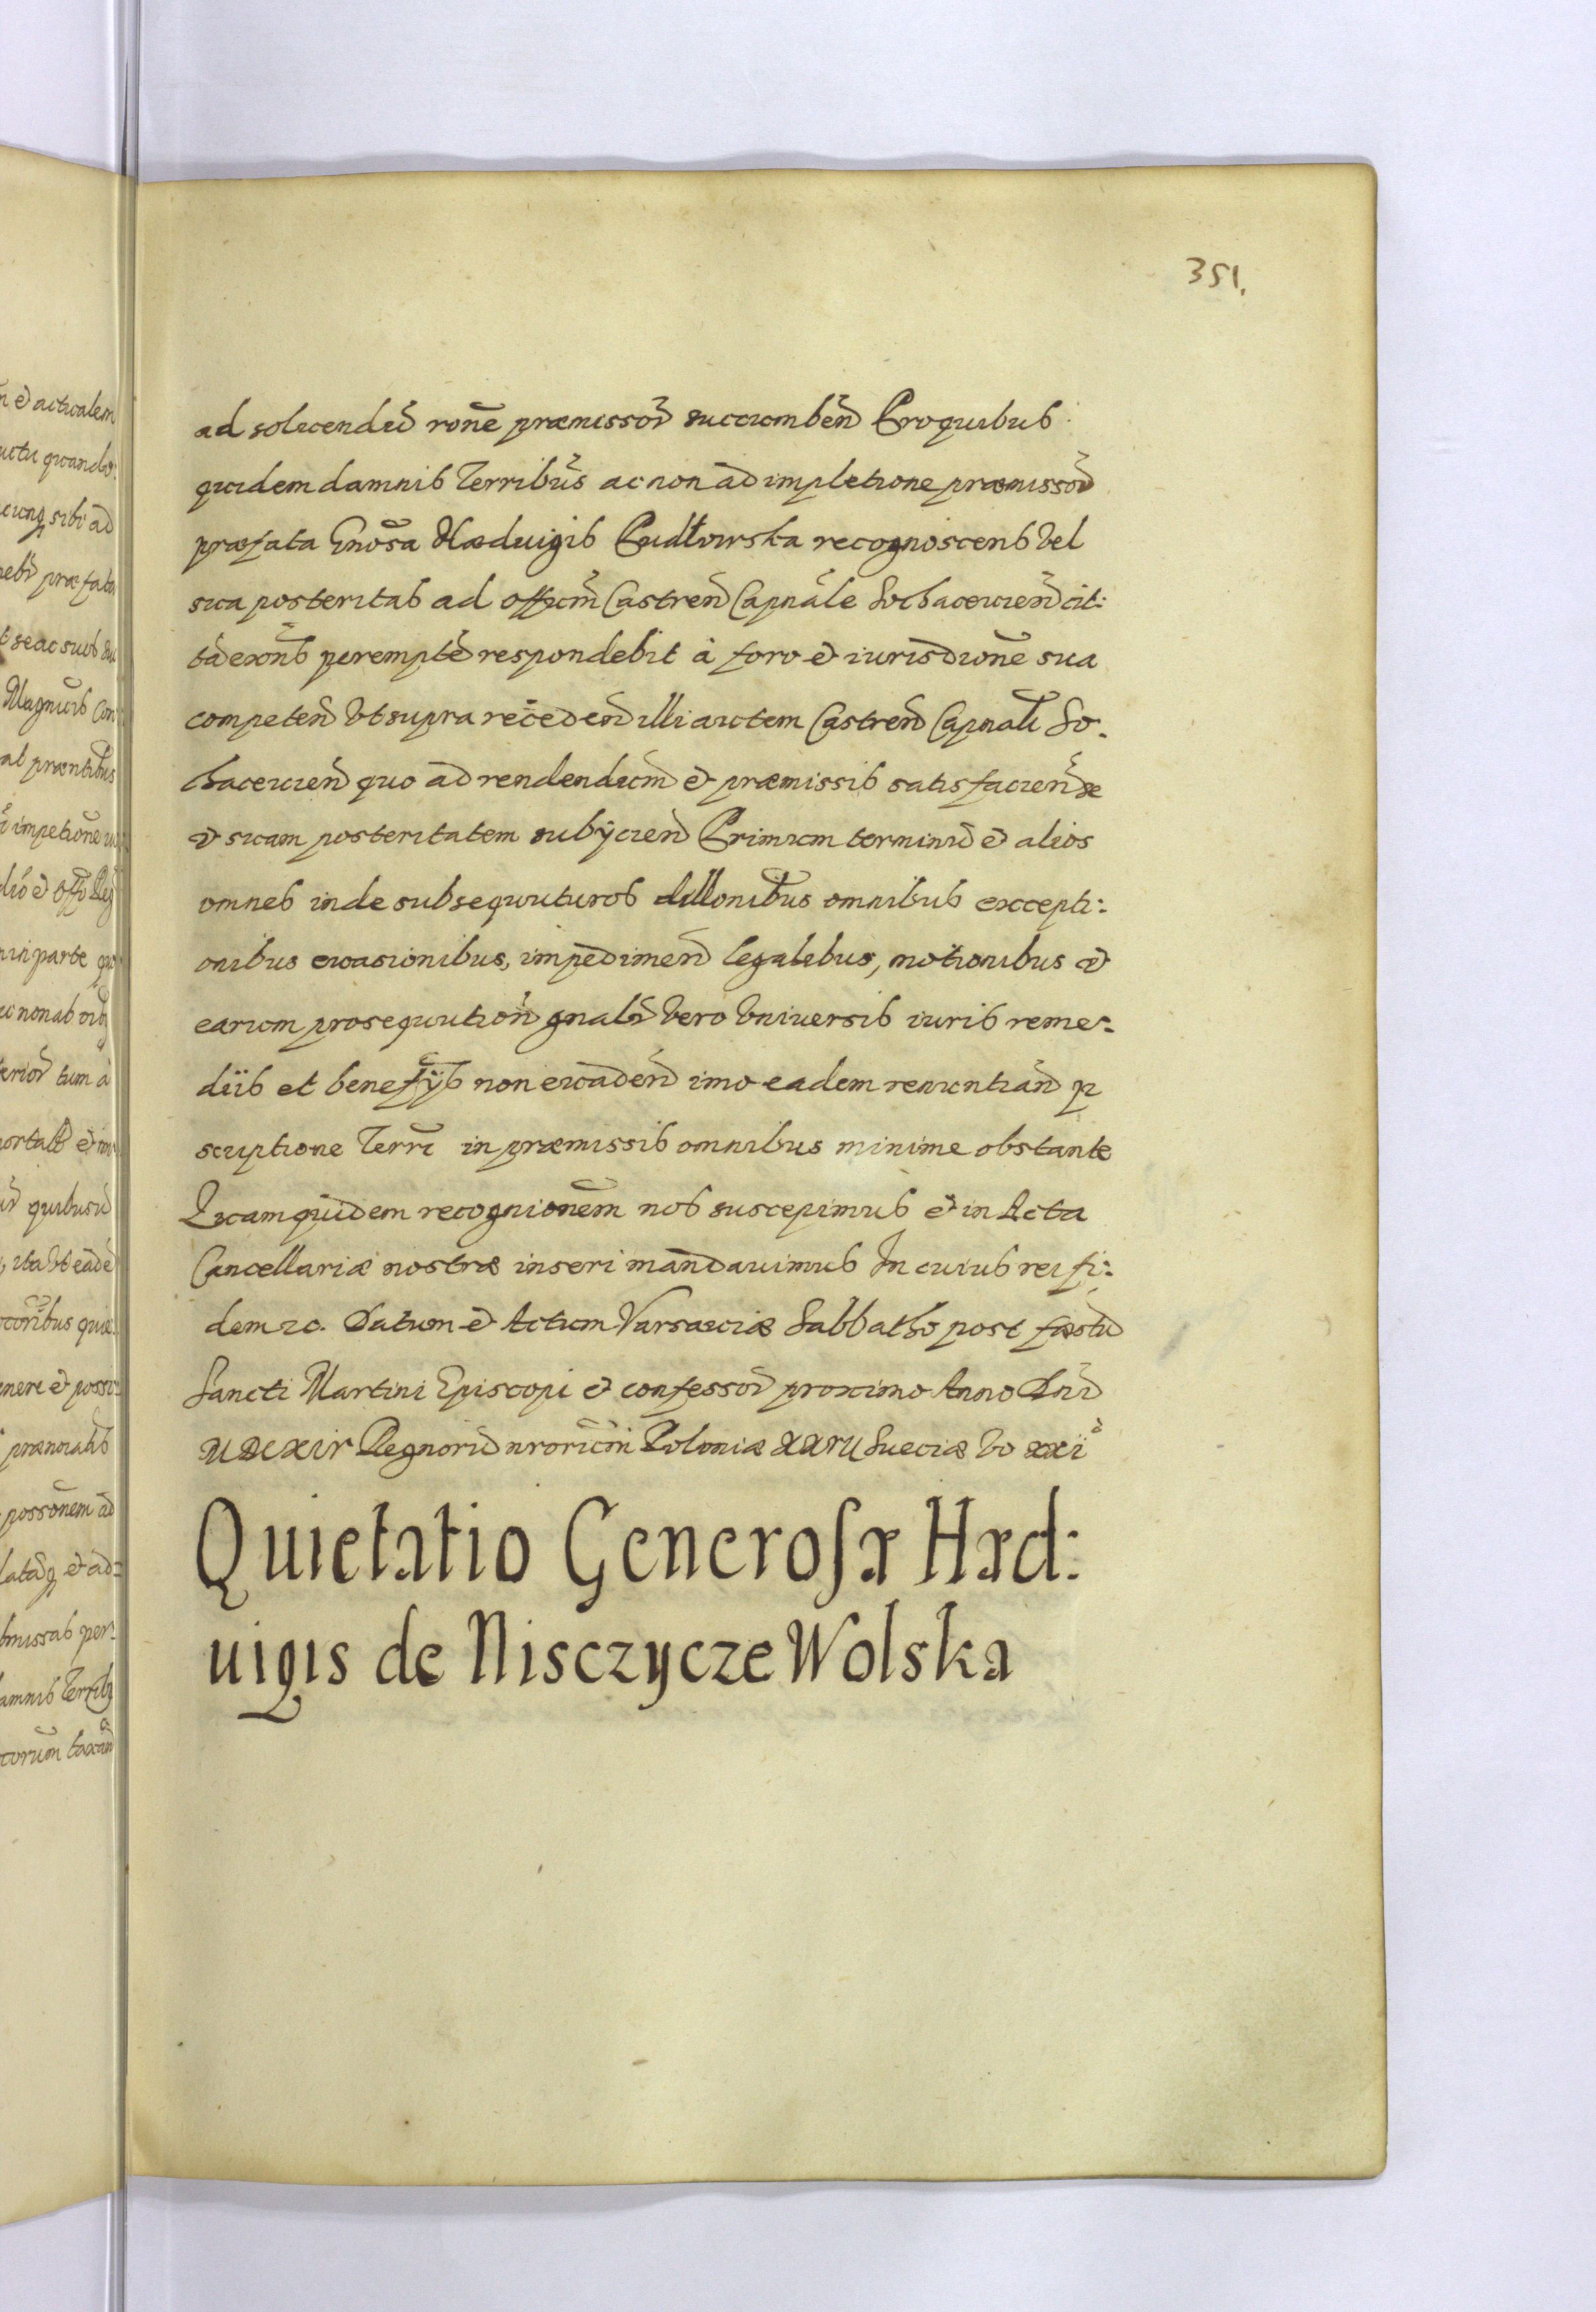 351.
ad soluendū ronē præmissoȓ succumbēn Pro quibus
quidem damnis Terribūs ac non adimpletione præmissoȓ
præfata Gnōsa Hæduigis Rudłowska recognoscens Vel
sua posteritas ad offium̄ Castreñ Capnāle Sochaceuieñ cit:
perempte respondebit à foro et iurisdione sua
competeñ Vt supra recedeñ illi autem Castreñ Capnali So:
chaceuieñ quo ad rendendum et præmissis satisfacieñ se
et suam posteritatem subijcieñ Primum terminū et alios
omnes inde subsequuturos dillonibus omnibus excepti:
onibus euasionibus, impedimeñ legalibus, motionibus et
earum prosequutioñ gnalr Vero Vniuersis iuris reme:
diis et benefijs non euadeñ imo eadem renuntiañ p
scriptione Terri in præmissis omnibus minime obstante
Quam quidem recognionem nos suscepimus et in Acta
Cancellariæ nostræ inseri mandauimus In cuius rei fi:
dem zc. Datum et Actum Varsauiæ Sabbatho post fæstū
Sancti Martini Episcopi et confessoȓ proximo Anno Dnī
Regnorū nrorum Poloniæ Sueciæ Vo xxi
Quietatio Generosæ Hæd:
uigis de Nisczycze Wolska